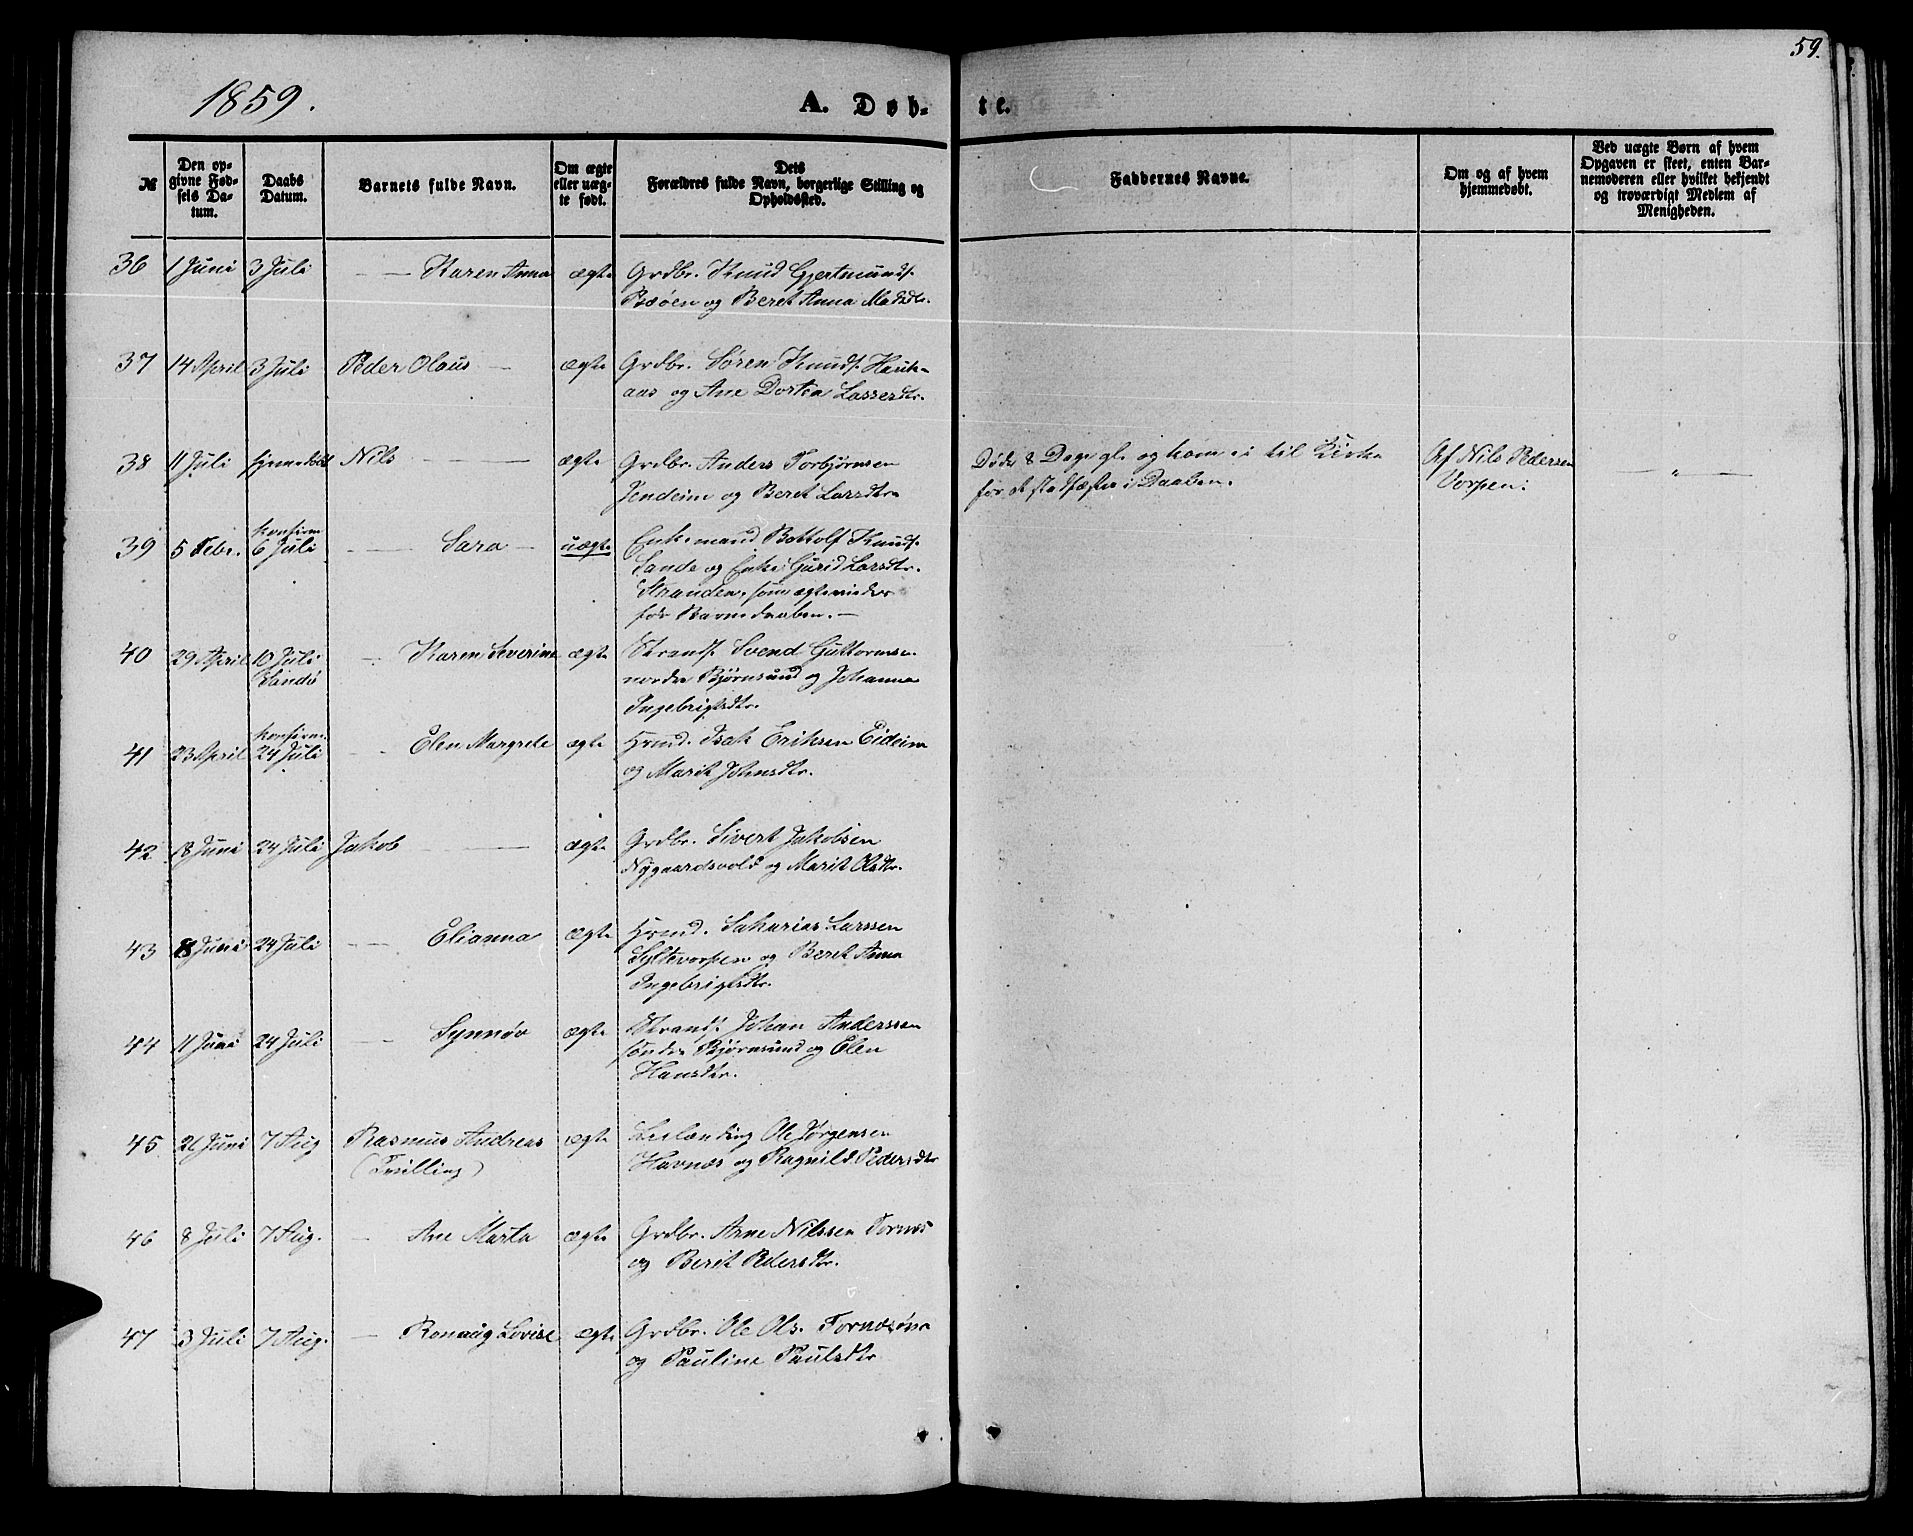 59.
1859.
A. Døb-
te.
№
Den op-
givne Fød-
sels Da-
tum.
Daabs
Datum.
Barnets fulde Navn.
Om ægte
eller uæg-
te født.
Dets
Forældres fulde Navn, borgerlige Stilling og
Opholdssted.
Faddernes Navne.
Om og af hvem
hjemmedøbt.
Ved uægte Børn af hvem
Opgaven er skeet, enten Bar-
nemoderen eller hvilket bekjendt
og troværdigt Medlem af
Menigheden.
36 1 Juni 3 Juli — Karen Anna ægte Grdbr. Knud Gjertmunds.
og Beret Anna Madsdtr.
37 14 April 3 Juli Peder Olaus — ægte Grdbr. Søren Knuds. Hauk-
aas og Ane Dortea Lassedtr.
38 11 Juli hjemmedøbt Nils — ægte Grdbr. Anders Torbjørnsen
Jendeim og Beret Larsdtr.
Døde 8 Dage gl. og kom ei til Kirke
for at stadfæstes i Daaben.
Af Nils Pedersen
Vorpen.
— " —
39 5 Febr. konfirm. 6 Juli — Sara — uægte Enkemand Bottolf Knuds.
Sande og Enke Gurid Larsdtr.
Stranden, som ægteviedes
før Barnedaaben. —
40 29 April 10 Juli Sandø — Karen Severine ægte Strands. Svend Guttormsen
nordre Bjørnsund og Johanna
Ingebrigtsdtr.
41 23 April konfirm. 24 Juli — Elen Margrete ægte Hmd. Isak Eriksen Eideim
og Marit Johnsdtr.
42 18 Juni 24 Juli Jakob — ægte Grdbr. Sivert Jakobsen
Nygaardsvold og Marit Olsdtr.
43 Juni 24 Juli — Elianna ægte Hmd. Sakarias Larssen
Syltevorpen og Beret Anna
Ingebrigtsdtr.
44 11 Juni 24 Juli — Synnøv ægte Strands. Johan Anderssen
søndre Bjørnsund og Elen
Hansdtr.
45 26 Juni 7 Aug Rasmus Andreas ægte Leslænding Ole Jørgensen
(Tvilling) Havnæs og Ragnild Pedersdtr
46 8 Juli 7 Aug. — Ane Marta ægte Grdbr. Arne Nilssen Tornes
og Berit Pedersdtr.
47 3 Juli 7 Aug. — Ronnaug Lovise ægte Grdbr. Ole Ols. Tornesøne
og Pauline Paulsdtr